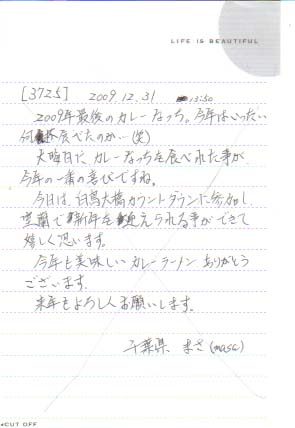 LIFE IS BEAUTIFUL
[3725] 2009.12.31 13:50
2009年最後のカレーなっち。今年はいったい
何杯食べたのか…(笑)
大晦日に、カレーなっちを食べれた事が
今年の一番の喜びですね。
今日は、白鳥大橋カウントダウンに参加し、
室蘭で新年を迎えられる事ができて
嬉しく思います。
今年も美味しいカレーラーメンありがとう
ございます。
来年もよろしくお願いします。
千葉県 まさ(masa)
CUT OFF